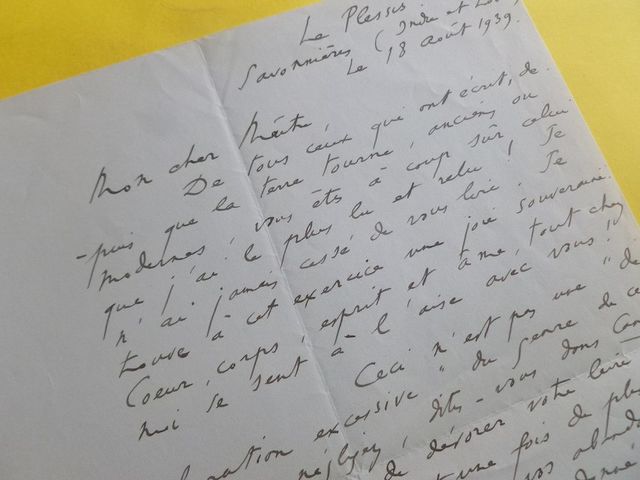 Le Plessis
Savonnières (Indre et
Le 18 Août 1939.
Mon cher Maître,
De tous ceux qui ont écrit, de-
-puis que la terre tourne, anciens ou
modernes, vous êtes à coup sûr celui
que j'ai le plus lu et relu ! Je
n'ai jamais cessé de vous lire. Je
trouve à cet exercice une joie souveraine.
Coeur, corps, esprit et âme, tout chez
moi se sent à l'aise avec vous !
Ceci n'est pas une "dé
ration excessive" du genre de ce
négligez, dites-vous dans
de dévorer votre livre
une fois de plus
vos